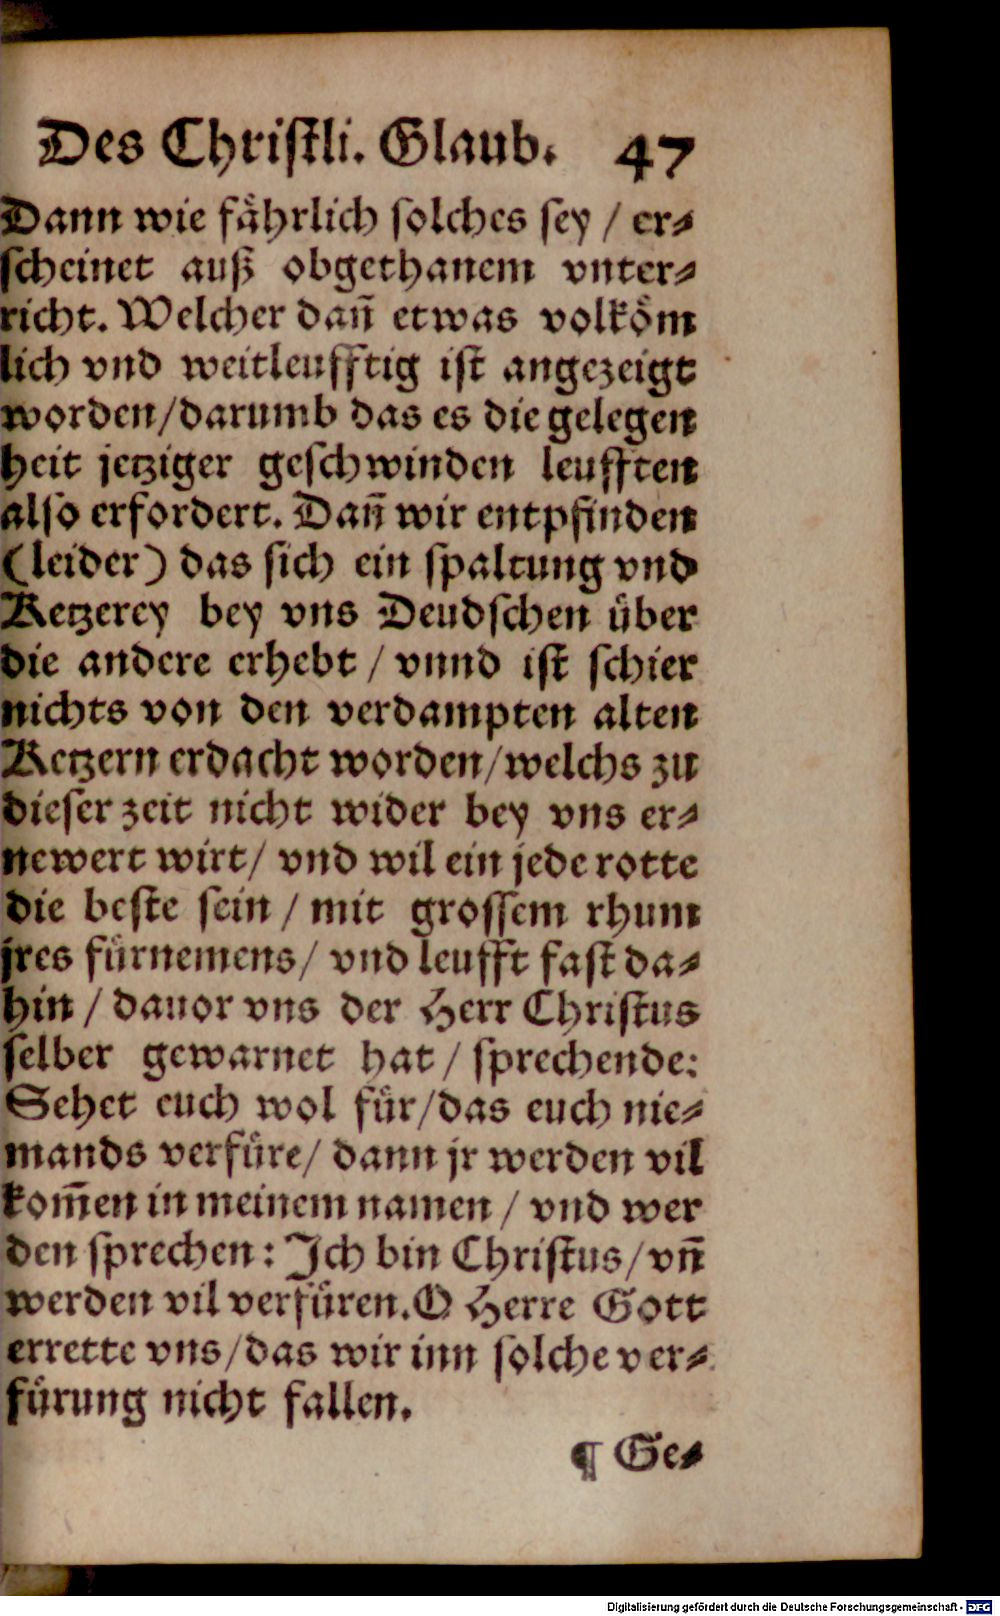 Des Christli. Glaub. 47
Dann wie fåhrlich solches sey / er⸗
scheinet auß obgethanem vnter⸗
richt. Welcher dañ etwas volkŏm
lich vnd weitleufftig ist angezeigt
worden/darumb das es die gelegen
heit jetziger geschwinden leufften
also erfordert. Dañ wir entpfinden
(leider) das sich ein spaltung vnd
Ketzerey bey vns Deudschen über
die andere erhebt / vnnd ist schier
nichts von den verdampten alten
Ketzern erdacht worden/welchs zu
dieser zeit nicht wider bey vns er⸗
newert wirt/ vnd wil ein jede rotte
die beste sein / mit grossem rhum
jres fürnemens/ vnd leufft fast da⸗
hin / dauor vns der Herr Christus
selber gewarnet hat / sprechende:
Sehet euch wol für/das euch nie⸗
mands verfüre/ dann jr werden vil
kom̃en in meinem namen / vnd wer
den sprechen: Ich bin Christus/ vñ
werden vil verfüren. O Herre Gott
errette vns/das wir inn solche ver⸗
fürung nicht fallen.
¶ Ge⸗
Digitalisierung gefördert durch die Deutsche Forschungsgemeinschaft - DFG